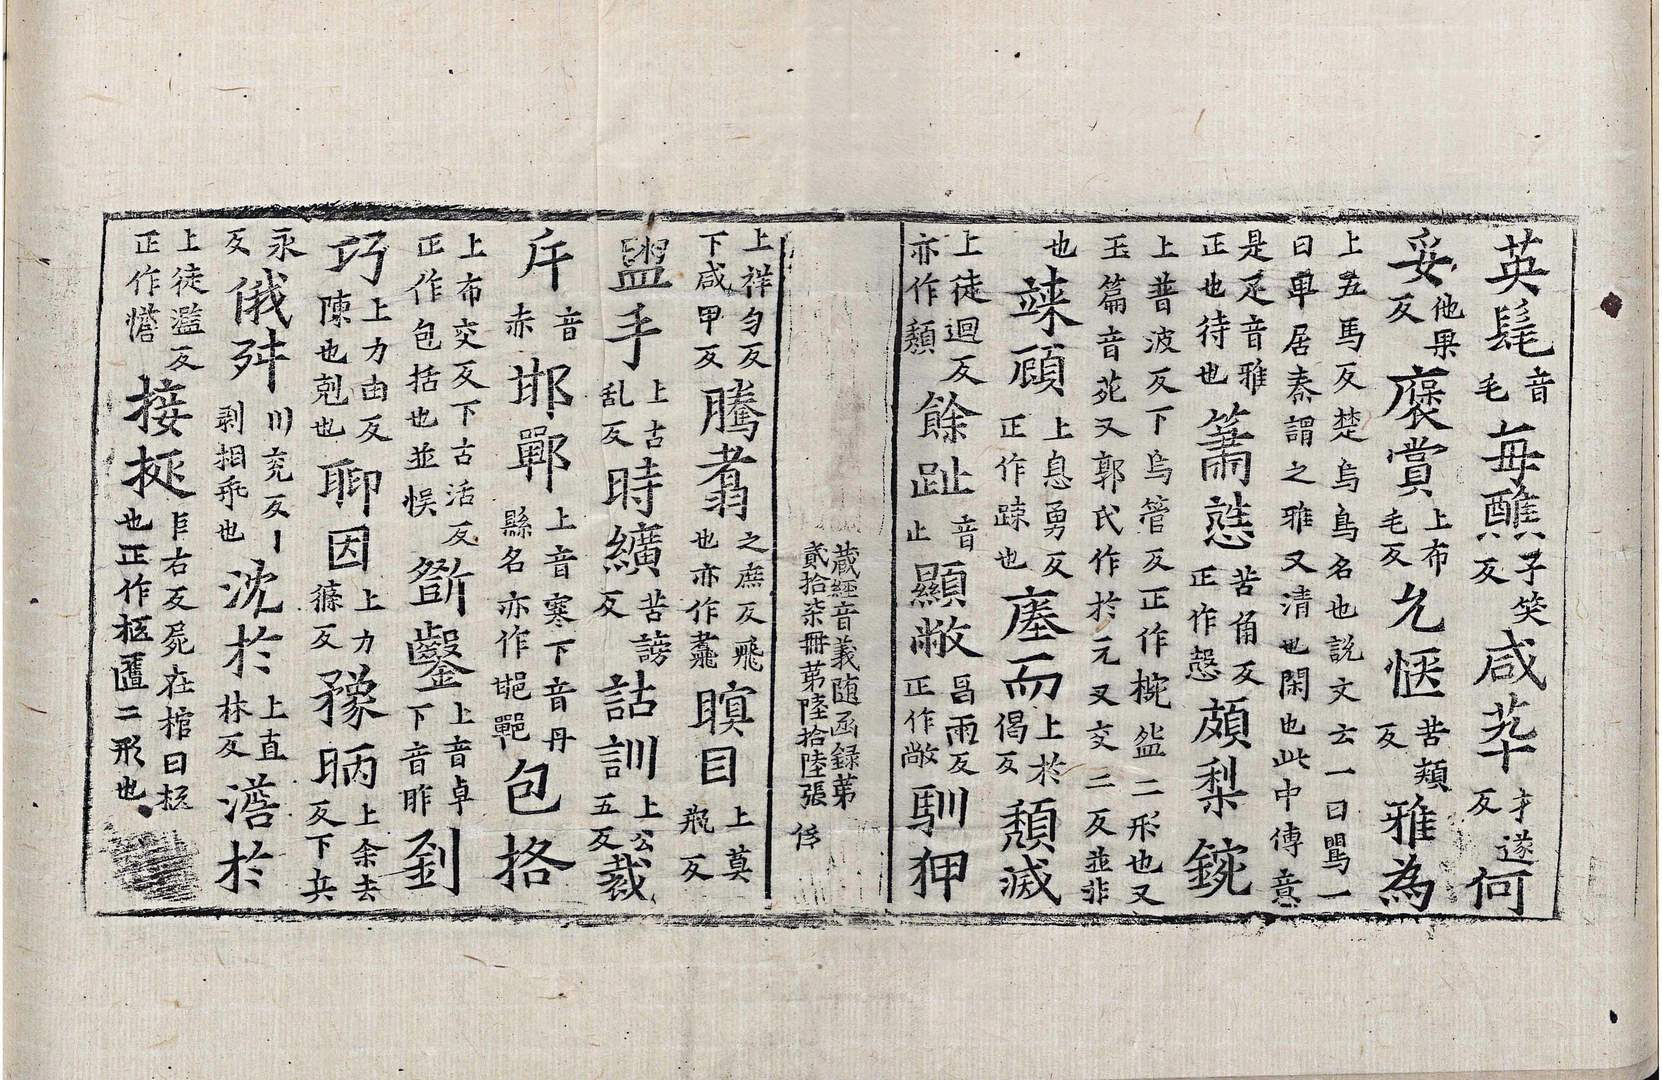 英髦音毛毎醮子笑反咸萃才遂反何
妥他果反褒賞上布毛反允愜苦頬反雅為
上五馬反楚烏鳥名也説文云一曰鸒一曰卑居秦謂之雅又清也閑也此中傳意
是疋音雅正也待也簫愨苦角反正作愨頗梨鋺
上普波反下烏管反正作椀盌二形也又玉篇音苑又郭氏作於元又交二反並非
也竦頎上息勇反正作踈也塵而上於偈反頽滅
上徒迴反亦作頽餘趾音止顯敝昌兩反正作敞馴狎
藏經音義随函録第貳拾柒冊第陸拾陸張
上祥勻反下咸甲反騰翥之庶反飛也亦作䬡瞑目上莫瓶反
盥手上古乱反時纊苦謗反詁訓上公五反裁
斥音赤邯鄲上音寒下音丹縣名亦作包格
上布交反下古活反正作包括也並悮斲鑿上音卓下音昨剖
巧上力由反陳也剋也聊因上力蓧反豫昞上余去反下兵
永反俄舛川兖反剥相乖也沈於上直林反澹於
上徒濫反正作憺接柩巨右反屍在棺曰柩也正作柩匶二形也